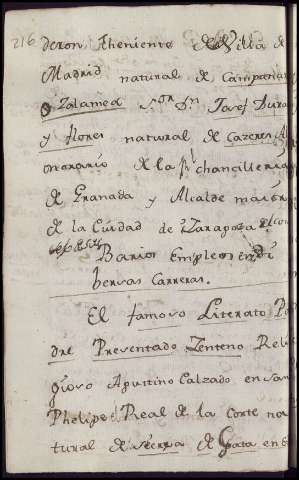 216
deron Theniente de Villa de
Madrid natural de Campana
o Zalamea Sor Dn Josef Dura
y flores natural de Cazeres A
onorario de la Rl chancilleria
de Granada y Alcalde maior
de la Ciudad de Zaragoza
Barios Empleos en di
bersas Carreras.
El famoso Literato Pa
dre Presentado Zenteno Reli
gioso Agustino Calzado en San
Phelipe Real de la Corte na
tural de de Gata en E